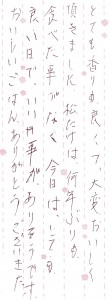 とても香りも良く、大変おいしく
頂きました 松たけは何年ぶりも
食べた事がなく 今日は とても
良い日で、いい事がありそうです
おいしいごはんありがとうございました